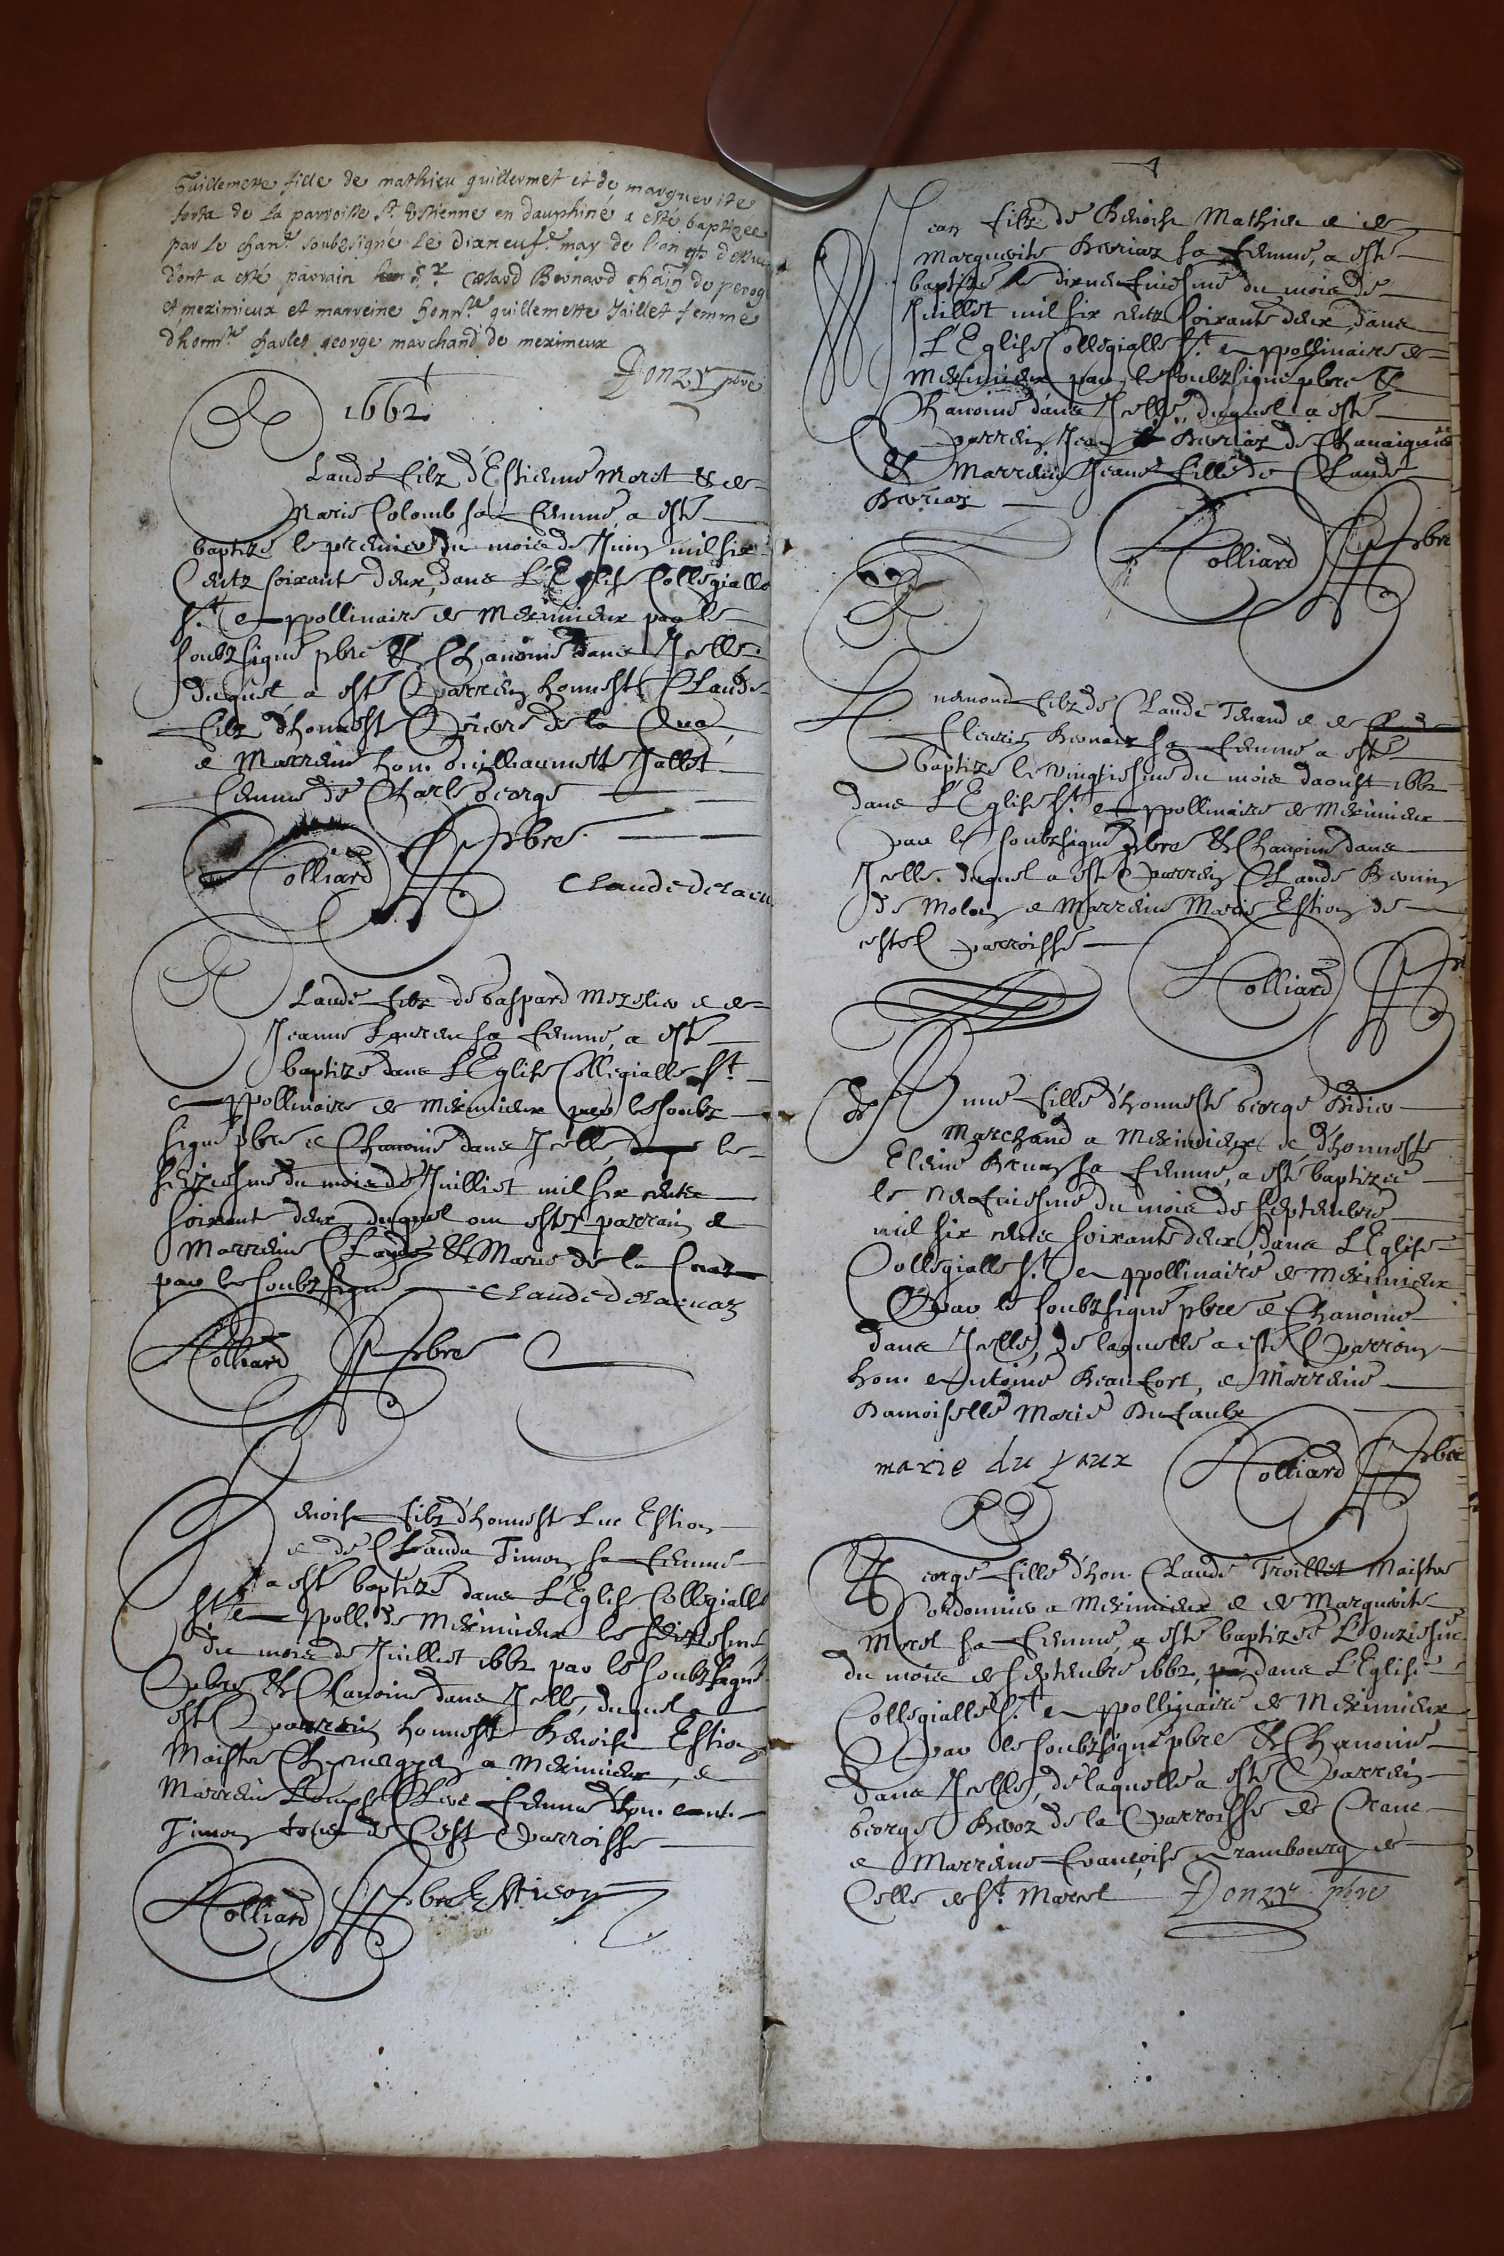 Guillemette fille de mathieu guillermet et de marguerite
de la parroisse St Estienne en dauphiné a esté baptizee
par le chan.e soubzsigné Le dixneuf.e may de l'an
dont a esté parrain Sr Cesard Bernard chatn de perog
et meximieux et marreine honn.te guillemette Jaillet femme
d'honn.te charles george marchand de meximeux
Donzy pbre
1662
Claude filz d'Estienne Moret & de
Marie Colomb sa femme, a esté
baptizé le premier du mois de Juin mil six
centz soixante deux, dans L'Eglise Collegialle
St Appollinaire de Meximieux par le
soubzsigné pbre & Chanoine dans Icelle
duquel a esté Parrein honneste Claude
filz d'honneste Pierre de la Cua,
e Marreine hon. Guilleaumette Jallet
femme de Charle George
Colliard Pbre
Claude delacu
Claude filz de Gaspard Mezelier e de
Jeanne Lauren sa femme, a esté
baptizé dans L'Eglise Collegialle St
Appollinaire de Meximieux par le soubz
signé pbre e Chanoine dans Icelle le
seiziesme du mois de Juilliet mil six cents
soixante deux, duquel ont estez parrain e
Marreine Claude & Marie de la Cuaz
par le soubzsigné Claude delacuaz
Colliard Pbre
Benoist filz d'honneste Luc Estion
e de Clauda Timon sa femme
a esté baptizé dans L'Eglise Collegialle
St Appolli. de Meximieux le seiziesme
du mois de Juilliet 1662 par le soubzsigné
Pbre & Chanoine dans Icelle, duquel a
esté Parrein honneste Benoist Estion
Maistre Chyrurgyen a Meximieux, e
Marreine femme d'hon. ant.
Timon tous de Ceste Parroisse
Colliard Pbre Estion
4
Jean filz de Benoist Mathieu e de
Marguerite Berriaz sa femme, a esté
baptizé le dixneufiesme du mois de
Juillet mil six centz soixante deux dans
L'Eglise Collegialle St Appollinaire de
Meximieux par le soubzsigné pbre &
Chanoine dans Icelle, duquel a esté
parrein Jean Berriaz de
& Marreine Jeane fille de Claude
Berriaz
Colliard Pbre
Annemond filz de Claude Tenand e de
Fleurie Bernaz sa femme a esté
baptizé le vingtiesme du mois daoust 1662
dans L'Eglise St Appollinaire de Meximieux
par le soubzsigné Pbre & Chanoine dans
Icelle. duquel a esté Parrein Claude
de Molon e Marreine Marie Estion de
ceste Parroisse
Colliard
Anne fille d'honneste George Bidier
Marchand a Meximieux e d'honneste
Eleine sa femme, a esté baptizée
le neufiesme du mois de septembre
mil six cents soixante deux, dans L'Eglise
Collegialle St Appollinaire de Meximieux
Par le soubzsigné pbre e Chanoine
dans Icelle, de laquelle a esté Parrein
hon. Antoine Beaufort, e Marreine
Damoiselle Marie Dufaulx
marie du faux
Colliard Pbre
George fille d'hon. Claude Troillet Maistre
Cordonnier a Meximieux e de Marguerite
Morel sa femme, a esté baptizée L'onziesme
du mois de septembre 1662, dans L'Eglise
Collegialle St Appollinaire de Meximieux
Par le soubzsigné pbre & Chanoine
dans Icelle, de laquelle a esté Parrein
George Bevoz de la Parroisse de Crane
e Marreine Françoise Crambourg de
Celle de St Marcel
Donzy pbre